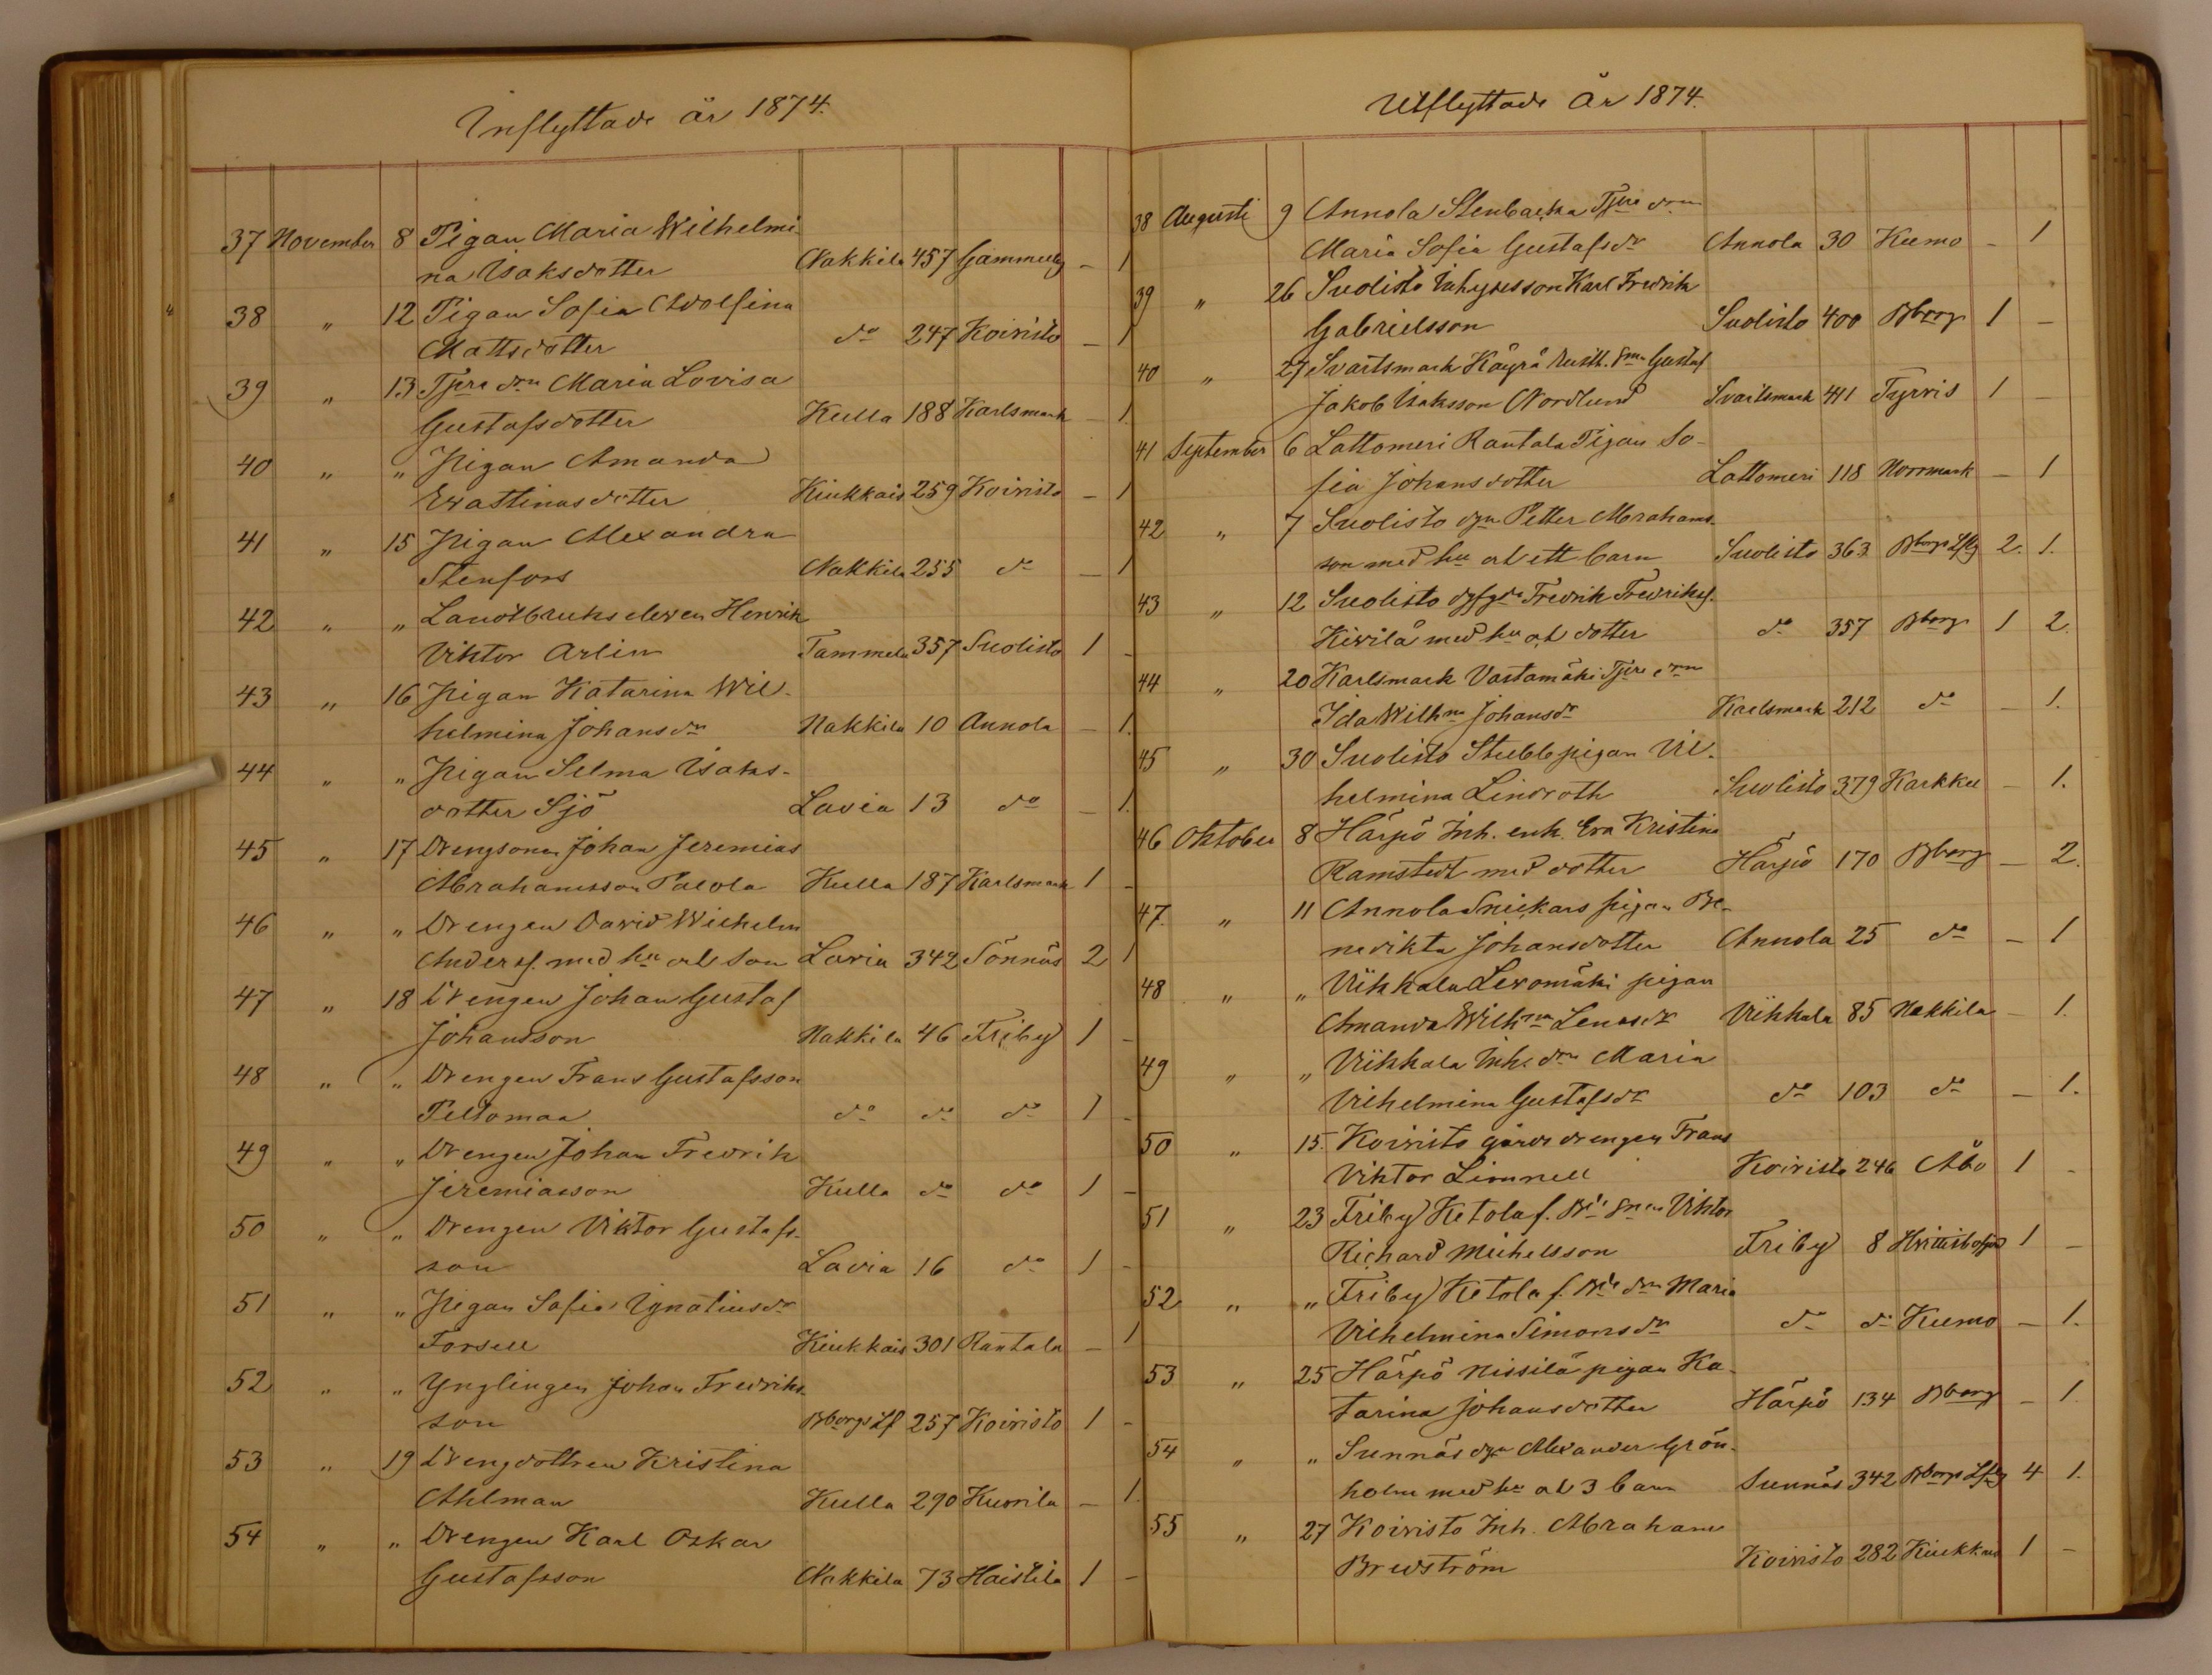 Inflyttade år 1874.
37 November 8 Pigan Maria Wilhelmi-
na Isaksdotter Nakkila 457 Gammelby — 1
38 " 12 Pigan Sofia Adolfina
Mattsdotter do 247 Koivisto — 1
39 " 13 Tjere drn Maria Lovisa
Gustafsdotter Kulla 188 Karlsmark — 1.
40 " " Pigan Amanda
Erastinusdotter Kiukkais 259 Koivisto — 1
41 " 15 Pigan Alexandra
Stenfors Nakkila 255 do — 1
42 " " Landtbrukseleven Henrik
Viktor Arlin Tammela 357 Suolisto 1 —
43 " 16 Pigan Katarina Wil-
helmina Johansdr Nakkila 10 Annola — 1.
44 " " Pigan Selma Isaks-
dotter Sjö Lavia 13 do — 1.
45 " 17 Drengsonen Johan Jeremias
Abrahamsson Palola Kulla 187 Karlsmark 1 —
46 " " Drengen David Wilhelm
Andersf. med hu och son Lavia 342 Sönnäs 2 1
47 " 18 Drengen Johan Gustaf
Johansson Nakkila 46 Friby 1 —
48 " " Drengen Frans Gustafsson
Peltomaa do do do 1 —
49 " " Drengen Johan Fredrik
Jeremiasson Kulla do do 1 —
50 " " Drengen Viktor Gustafs-
son Lavia 16 do 1 —
51 " " Pigan Sofia Ignatiusdr
Forsell Kiukkais 301 Rantala — 1
52 " " Ynglingen Johan Fredriks-
son Bborgs Lf 257 Koivisto 1 —
53 " 19 Drengdottren Kristina
Ahlman Kulla 290 Kurila — 1.
54 " " Drengen Karl Oskar
Gustafsson Nakkila 73 Haistila 1 —
Utflyttade År 1874.
38 Augusti 9 Annola Stenbacka Tjere drn
Maria Sofia Gustafsdr Annola 30 Kumo — 1
39 " 26 Suolisto Inhysesson Karl Fredrik
Gabrielsson Suolisto 400 Bborg 1 —
40 " 27 Svartsmark Köyrä Rusth. sn Gustaf
Jakob Isaksson Nordlund Svartsmark 441 Tyrvis 1 —
41 September 6 Lattomeri Rantala Pigan So-
fia Johansdotter Lattomeri 118 Norrmark — 1
42 " 7 Suolisto dgn Petter Abrahams-
son med hu och ett barn Suolisto 363 Bborgs Lfg 2. 1.
43 " 12 Suolisto Fredrik Fredriksf.
Kivilä med hu och dotter do 357 Bborg 1 2.
44 " 20 Karlsmark Vastamäki Tjere drn
Ida Wilhna Johansdr Karlsmark 212 do — 1.
45 " 30 Suolisto Stubb pigan Vil-
helmina Lindroth Suolisto 379 Karkku — 1.
46 Oktober 8 Härpö Inh. enk. Eva Kristina
Ramstedt med dotter Härpö 170 Bborg — 2.
47. " 11 Annola Snickars pigan Be-
nedikta Johansdotter Annola 25 do — 1
48 " " Viikkala Levomäki pigan
Amanda Wilhna Lenasdr Viikkala 85 Nakkila — 1.
49 " " Viikkala Inh. drn Maria
Vilhelmina Gustafsdr do 103 do — 1.
50 " 15. Koivisto gårds drengen Frans
Viktor Limnell Koivisto 246 Åbo 1 —
51 " 23 Friby Ketola f. Bde snen Viktor
Richard Michelsson Friby 8 Hvittisbofjärd 1 —
52 " " Friby Ketola f. Bde drn Maria
Vilhelmina Simonsdr do do Kumo — 1.
53 " 25 Härpö Nissilä pigan Ka-
tarina Johansdotter Härpö 134 Bborg — 1
54 " " Sunnäs dgn Alexander Grön-
holm med hu och 3 barn Sunnäs 342 Bborgs Lfg 4 1.
55 " 27 Koivisto Inh. Abraham
Bredström Koivisto 282 Kiukkais 1 —